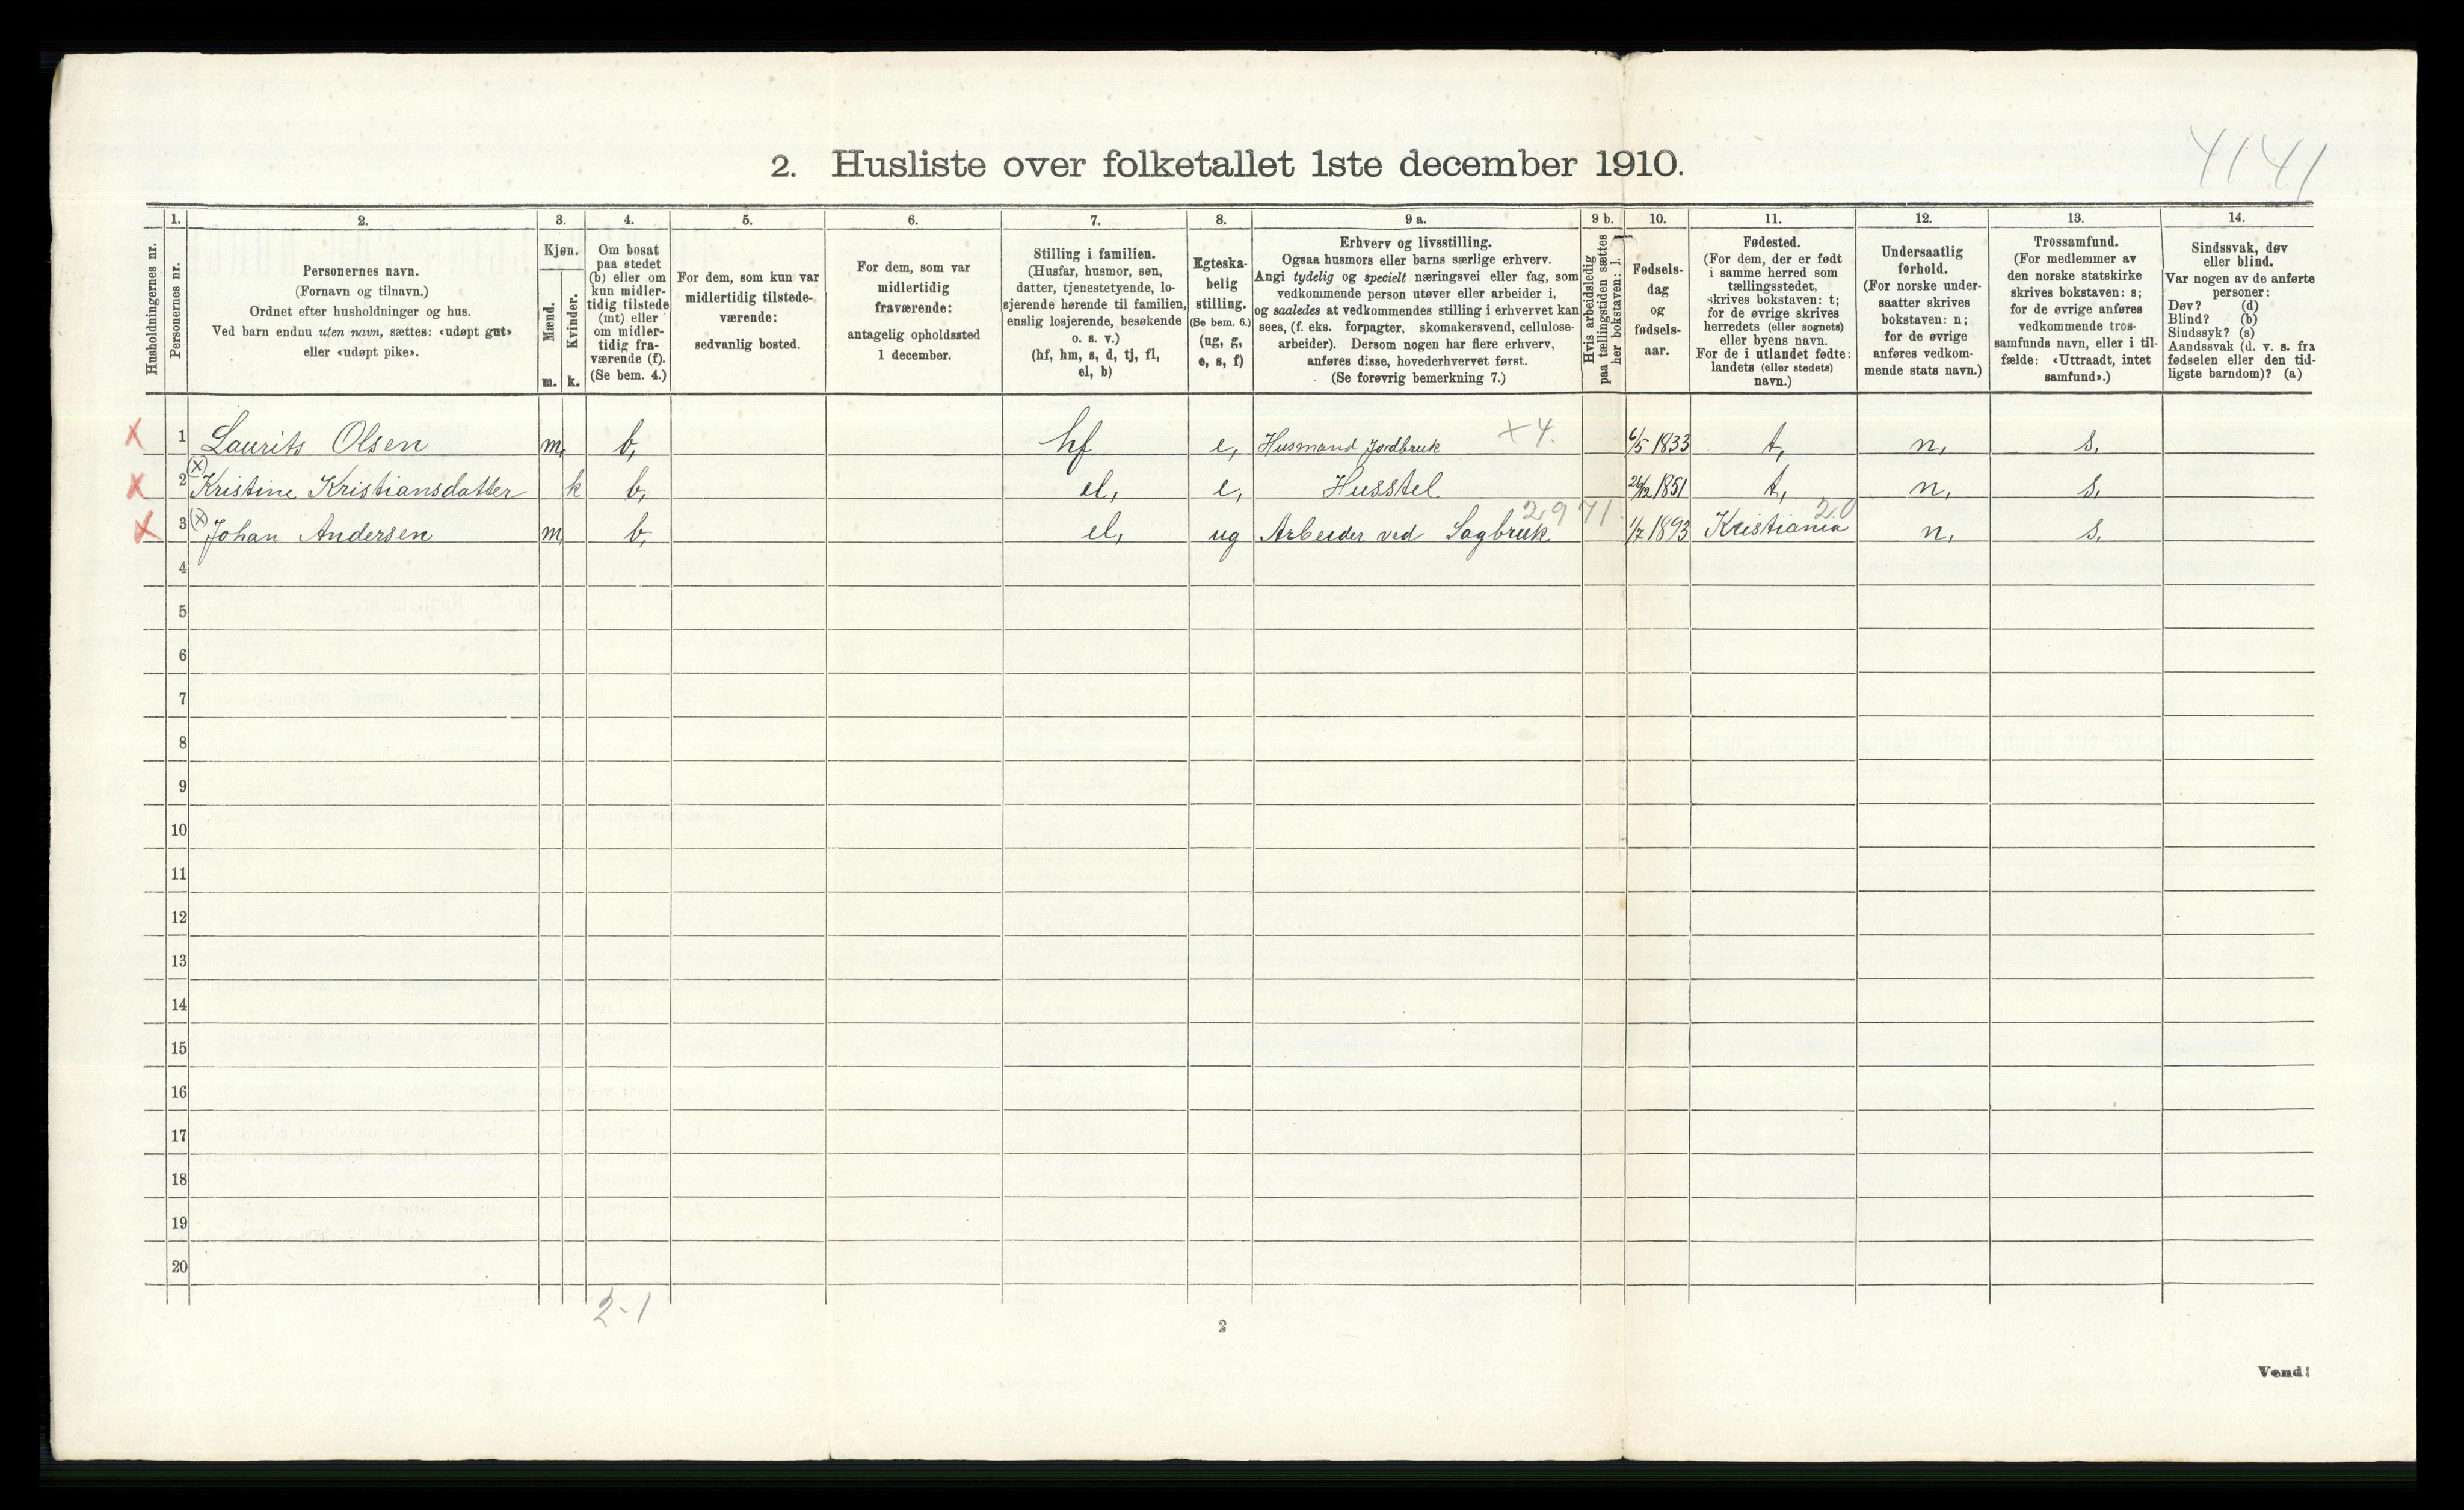 4141
2. Husliste over folketallet 1ste december 1910.
Husholdningernes nr.
1.
Personernes nr.
2.
Personernes navn.
(Fornavn og tilnavn.)
Ordnet efter husholdninger og hus.
Ved barn endnu uten navn, sættes: «udøpt gut»
eller «udøpt pike».
3.
Kjøn.
Mænd.
Kvinder.
m.
k.
4.
Om bosat
paa stedet
(b) eller om
kun midler-
tidig tilstede
(mt) eller
om midler-
tidig fra-
værende (f).
(Se bem. 4.)
5.
For dem, som kun var
midlertidig tilstede-
værende:
sedvanlig bosted.
6.
For dem, som var
midlertidig
fraværende:
antagelig opholdssted
1 december.
7.
Stilling i familien.
(Husfar, husmor, søn,
datter, tjenestetyende, lo-
sjerende hørende til familien,
enslig losjerende, besøkende
o. s. v.)
(hf, hm, s, d, tj, fl,
el, b)
8.
Egteska-
belig
stilling.
(Se bem. 6.)
(ug, g,
e, s, f)
9 a.
Erhverv og livsstilling.
Ogsaa husmors eller barns særlige erhverv.
Angi tydelig og specielt næringsvei eller fag, som
vedkommende person utøver eller arbeider i,
og saaledes at vedkommendes stilling i erhvervet kan
sees, (f. eks. forpagter, skomakersvend, cellulose-
arbeider). Dersom nogen har flere erhverv,
anføres disse, hovederhvervet først.
(Se forøvrig bemerkning 7.)
9 b.
Hvis arbeidsledig
paa tællingstiden sættes
her bokstaven: l.
10.
Fødsels-
dag
og
fødsels-
aar.
11.
Fødested.
(For dem, der er født
i samme herred som
tællingsstedet,
skrives bokstaven: t;
for de øvrige skrives
herredets (eller sognets)
eller byens navn.
For de i utlandet fødte:
landets (eller stedets)
navn.)
12.
Undersaatlig
forhold.
(For norske under-
saatter skrives
bokstaven: n;
for de øvrige
anføres vedkom-
mende stats navn.)
13.
Trossamfund.
(For medlemmer av
den norske statskirke
skrives bokstaven: s;
for de øvrige anføres
vedkommende tros-
samfunds navn, eller i til-
fælde: «Uttraadt, intet
samfund».)
14.
Sindssvak, døv
eller blind.
Var nogen av de anførte
personer:
Døv? (d)
Blind? (b)
Sindssyk? (s)
Aandssvak (d. v. s. fra
fødselen eller den tid-
ligste barndom)? (a)
X 1 Laurits Olsen m, b, hf e, Husmand Jordbruk x 4. 6/5 1833 t, n, s,
X 2 (x) Kristine Kristiansdatter k b, el, e, Husstel 26/12 1851 t, n, s,
2971. 20
X 3 (x) Johan Andersen m, b, el, ug Arbeider ved Sagbruk 1/7 1893 Kristiania n, s,
4
5
6
7
8
9
10
11
12
13
14
15
16
17
18
19
20
2-1
2
Vend!